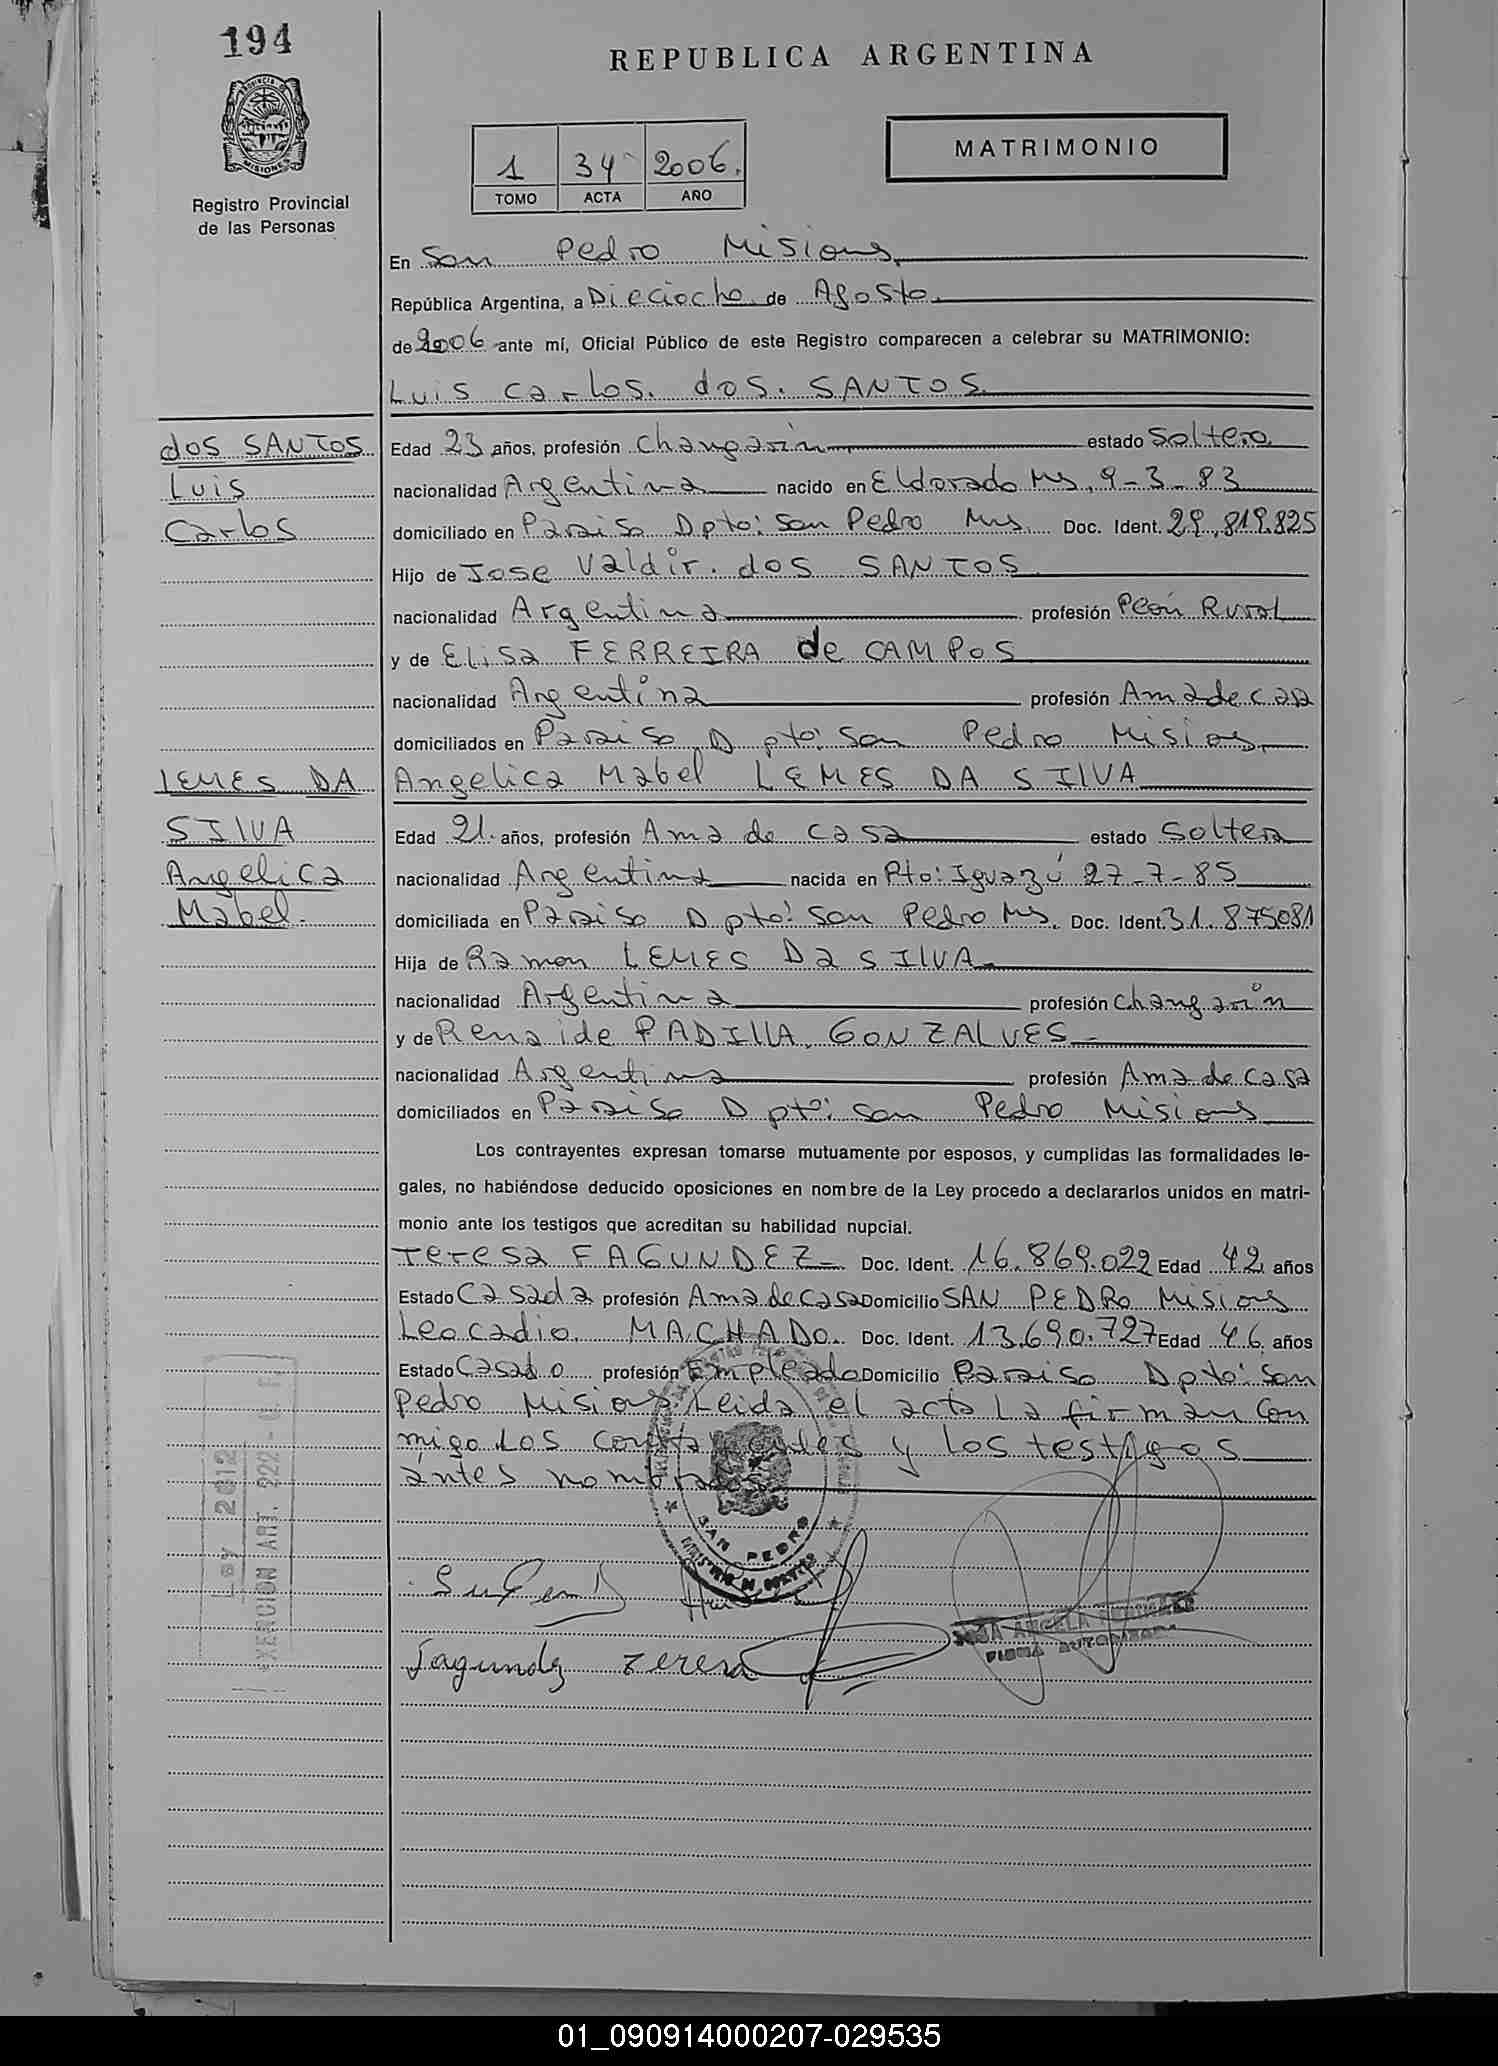 194
REPUBLICA ARGENTINA
PROVINCIA DE
MISIONES
MATRIMONIO
1 34 2006.
TOMO ACTA AÑO
Registro Provincial
de las Personas
En San Pedro Misiones
República Argentina, a Dieciocho de Agosto
de 2006 ante mí, Oficial Público de este Registro comparecen a celebrar su MATRIMONIO:
Luis Carlos. dos. SANTOS
dos SANTOS
Luis
Carlos
Edad 23 años, profesión Changarín estado Soltero
nacionalidad Argentina nacido en Eldorado Ms, 9-3-83
domiciliado en Paraiso Dpto: San Pedro Mns. Doc. Ident. 29.819.825
Hijo de Jose Valdir. dos SANTOS
nacionalidad Argentina profesión Peón Rural
y de Elisa FERREIRA de CAMPOS
nacionalidad Argentina profesión Ama de casa
domiciliados en Paraiso Dpto: San Pedro Misiones
LEMES DA
SILVA
Angelica
Mabel.
Angelica Mabel LEMES DA SILVA
Edad 21. años, profesión Ama de casa estado Soltera
nacionalidad Argentina nacida en Pto: Iguazú 27-7-85
domiciliada en Paraiso Dpto: San Pedro Ms. Doc. Ident. 31.875081
Hija de Ramon LEMES Da SILVA
nacionalidad Argentina profesión Changarín
y de Renaide PADILLA, GONZALVES
nacionalidad Argentina profesión Ama de casa
domiciliados en Paraiso Dpto: San Pedro Misiones
Los contrayentes expresan tomarse mutuamente por esposos, y cumplidas las formalidades le-
gales, no habiéndose deducido oposiciones en nombre de la Ley procedo a declararlos unidos en matri-
monio ante los testigos que acreditan su habilidad nupcial.
Teresa FAGUNDEZ Doc. Ident. 16.869.022 Edad 42 años
Estado Casada profesión Ama de casa Domicilio SAN PEDRO Misiones
Leocadio. MACHADO. Doc. Ident. 13.690.727 Edad 46 años
Estado Casado profesión Empleado Domicilio Paraiso Dpto: San
Pedro Misiones Leida el acta La firman Con
migo Los contrayentes y los testigos
antes nombrados
SAN PEDRO
Ley 2612
EXENCION ART. 222
Fagundez Teresa
ANGELA
FIRMA AUTORIZADA
01_090914000207-029535